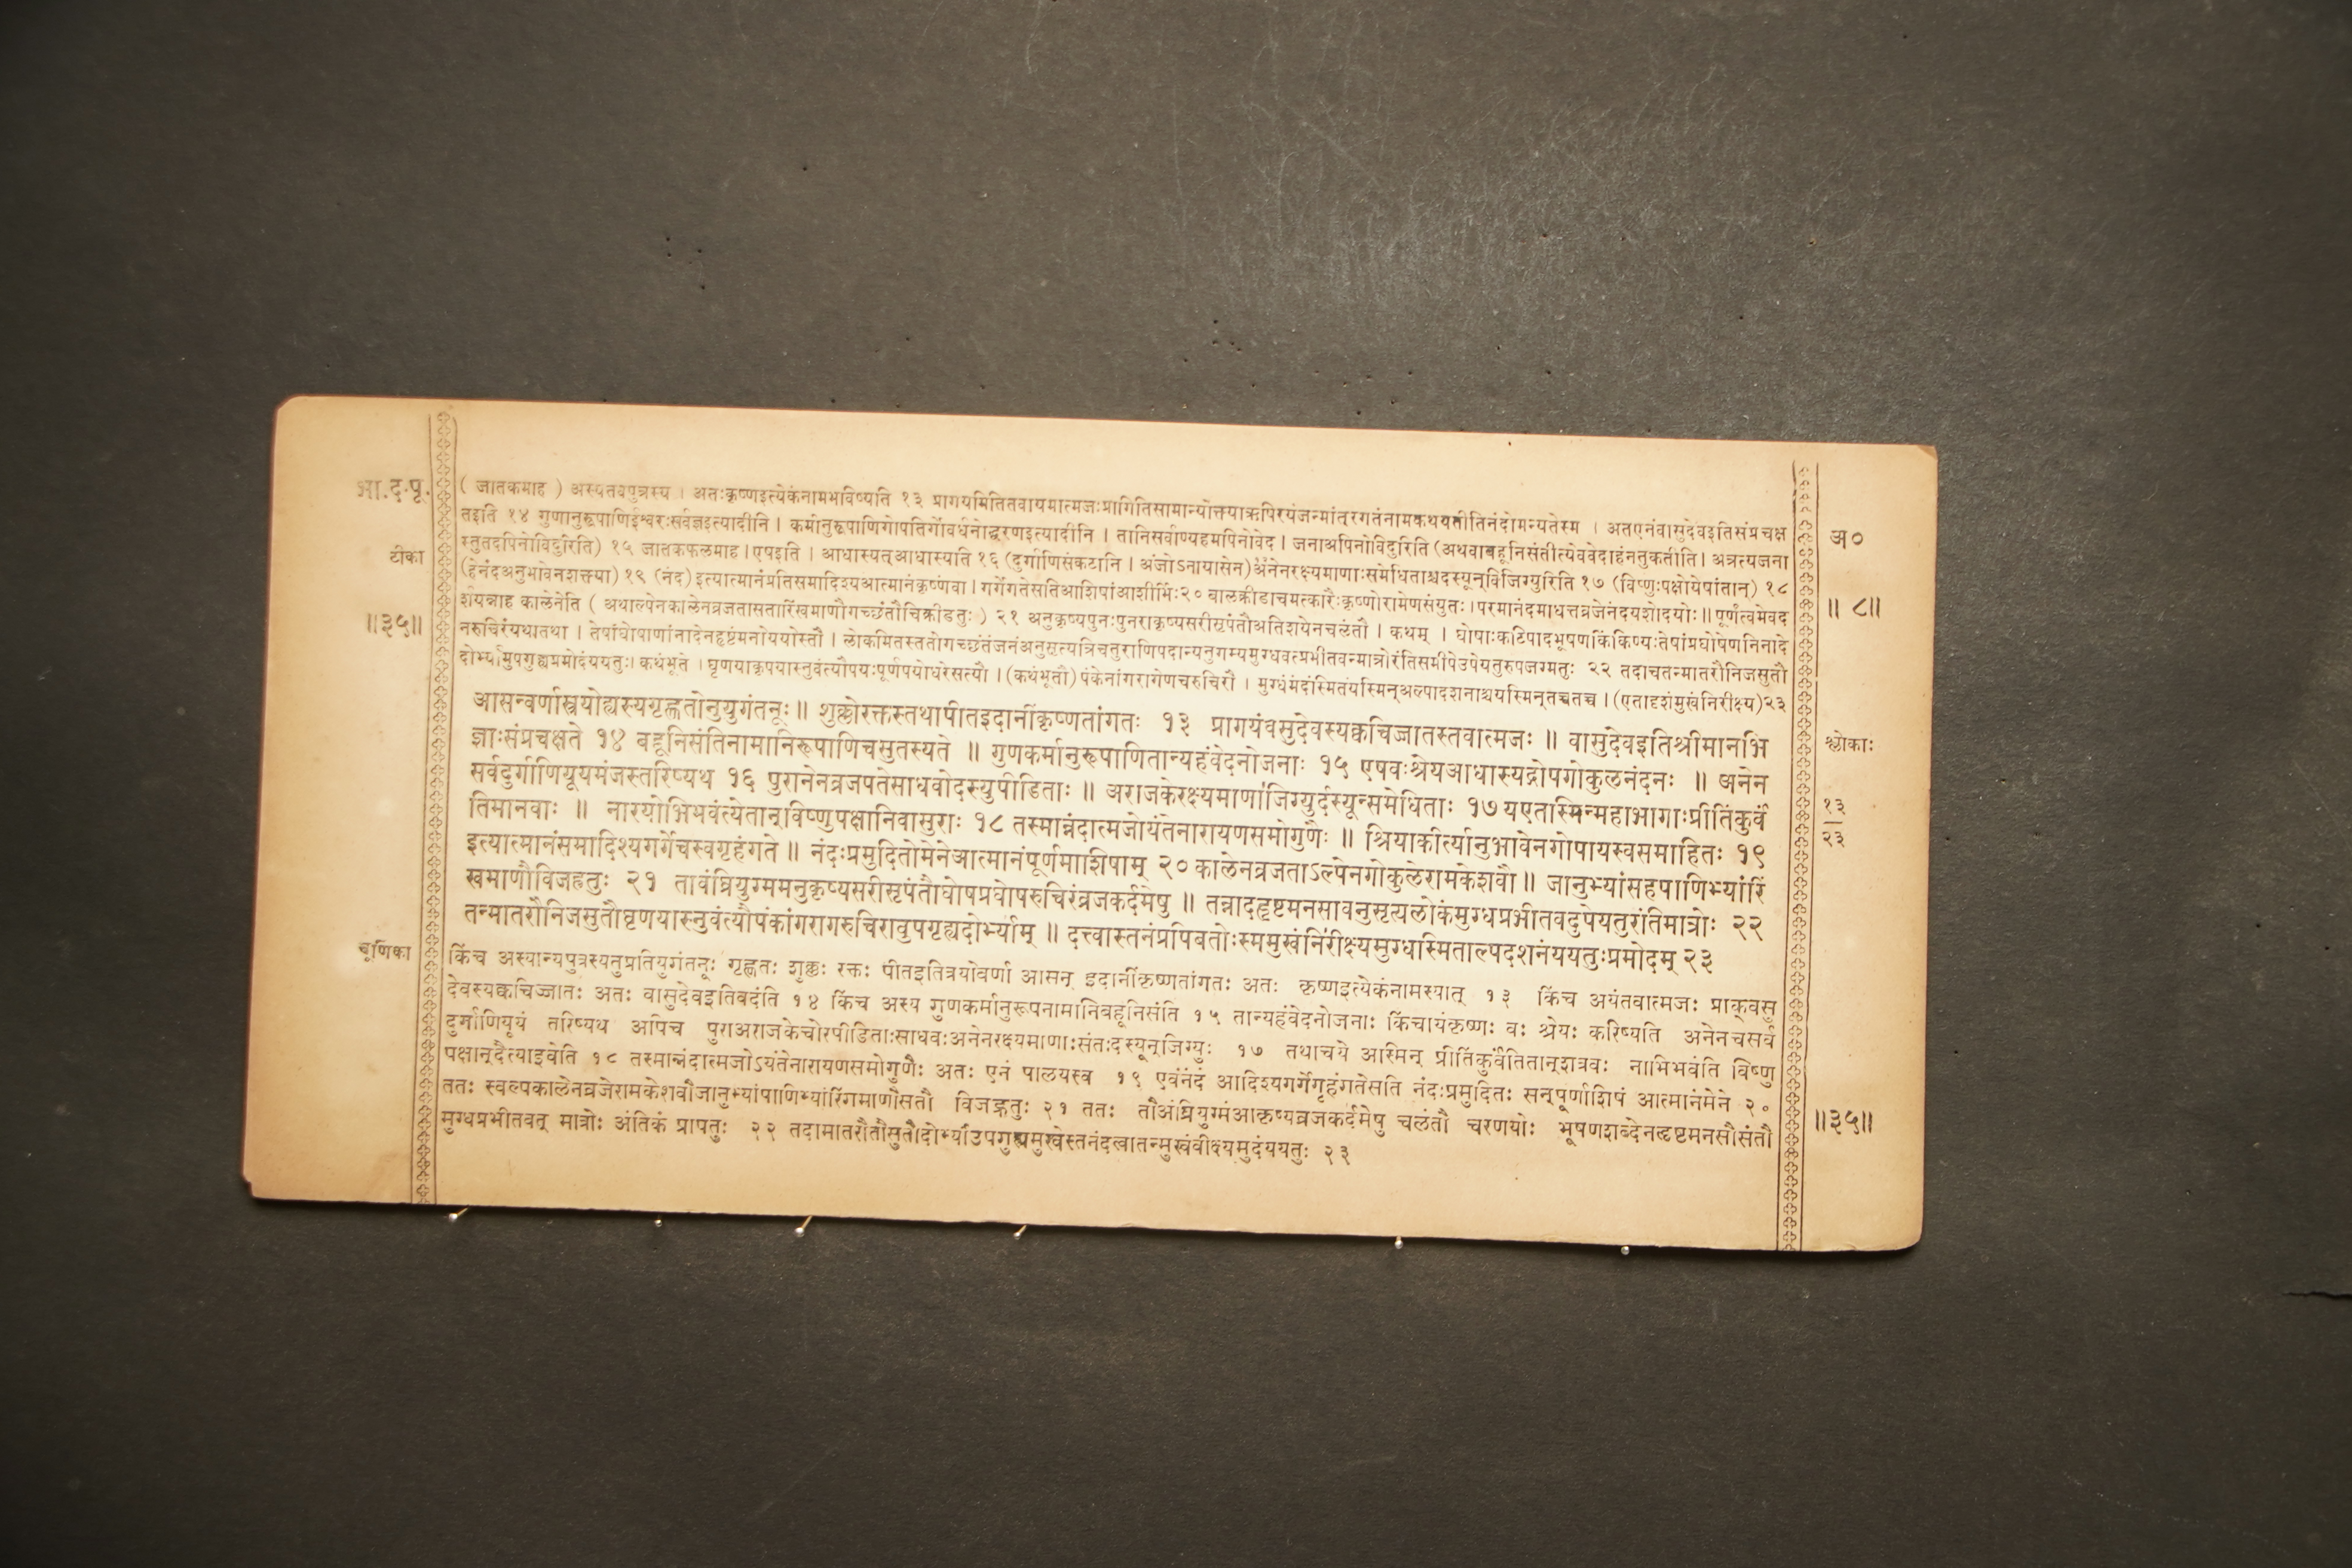 भा.द.पू.
( जातकमाह ) अस्यतवपुत्रस्य । अतःकृष्णइत्येकंनामभविष्यति १३ प्रागयमितितवायमात्मजःप्रागितिसामान्योक्त्याऋषिरयंजन्मांतरगतंनामकथयतीतिनंदोमन्यतेस्म । अतएनंवासुदेवइतिसंप्रचक्ष
तइति १४ गुणानुरूपाणिईश्वरःसर्वज्ञइत्यादीनि । कर्मानुरूपाणिगोपतिर्गोवर्धनोद्धरणइत्यादीनि । तानिसर्वाण्यहमपिनोवेद । जनाअपिनोविदुरिति (अथवाबहूनिसंतीत्येववेदाहंनतुकतीति। अत्रत्यजना
अ०
टीका
स्तुतदपिनोविदुरिति) १५ जातकफलमाह । एषइति । आधास्यत्आधास्यति १६ (दुर्गाणिसंकटानि । अंजोऽनायासेन) अनेनरक्ष्यमाणाःसमेधिताश्चदस्यून्विजिग्युरिति १७ (विष्णुःपक्षोयेषांतान्) १८
(हेनंदअनुभावेनशक्त्या) १९ (नंद) इत्यात्मानंप्रतिसमादिश्यआत्मानंकृष्णंवा । गर्गेगतेसतिआशिषांआशीर्भिः२० बालक्रीडाचमत्कारैःकृष्णोरामेणसंयुतः । परमानंदमाधत्तव्रजेनंदयशोदयोः ॥ पूर्णंत्वमेवद
॥ ८॥
॥३५॥
र्शयन्नाह कालेनेति ( अथाल्पेनकालेनव्रजतासतारिंखमाणौगच्छंतौचिक्रीडतुः ) २१ अनुकृष्यपुनःपुनराकृष्यसरीसृपंतौअतिशयेनचलंतौ । कथम् । घोषाःकटिपादभूषणकिंकिण्यःतेषांप्रघोषेणनिनादे
नरुचिरंयथातथा । तेषांघोषाणांनादेनहृष्टंमनोययोस्तौ । लोकमितस्ततोगच्छंतंजनंअनुसृत्यत्रिचतुराणिपदान्यनुगम्यमुग्धवत्प्रभीतवन्मात्रोरंतिसमीपेउपेयतुरुपजग्मतुः २२ तदाचतन्मातरौनिजसुतौ
दोर्भ्यामुपगुह्यप्रमोदंययतुः। कथंभूते । घृणयाकृपयास्नुवंत्यौपयःपूर्णपयोधरेसत्यौ । (कथंभूतौ) पंकेनांगरागेणचरुचिरौ । मुग्धंमंदंस्मितंयस्मिन्अल्पादशनाश्चयस्मिन्तच्चतच्च । (एतादृशंमुखंनिरीक्ष्य)२३
आसन्वर्णास्त्रयोह्यस्यगृह्णतोनुयुगंतनूः ॥ शुक्लोरक्तस्तथापीतइदानींकृष्णतांगतः १३ प्रागयंवसुदेवस्यक्वचिज्जातस्तवात्मजः ॥ वासुदेवइतिश्रीमानभि
श्लोकाः
ज्ञाःसंप्रचक्षते १४ बहूनिसंतिनामानिरूपाणिचसुतस्यते ॥ गुणकर्मानुरूपाणितान्यहंवेदनोजनाः १५ एषवःश्रेयआधास्यद्गोपगोकुलनंदनः ॥ अनेन
सर्वदुर्गाणियूयमंजस्तरिष्यथ १६ पुरानेनव्रजपतेसाधवोदस्युपीडिताः ॥ अराजकेरक्ष्यमाणाजिग्युर्दस्यून्समेधिताः १७ यएतास्मिन्महाभागाःप्रीतिंकुर्वं
१३
तिमानवाः ॥ नारयोभिभवंत्येतान्विष्णुपक्षानिवासुराः १८ तस्मान्नंदात्मजोयंतेनारायणसमोगुणैः ॥ श्रियाकीर्त्यानुभावेनगोपायस्वसमाहितः १९
२३
इत्यात्मानंसमादिश्यगर्गेचस्वगृहंगते ॥ नंदःप्रमुदितोमेनेआत्मानंपूर्णमाशिषाम् २० कालेनव्रजताऽल्पेनगोकुलेरामकेशवौ ॥ जानुभ्यांसहपाणिभ्यांरिं
खमाणौविजह्रतुः २१ तावंघ्रियुग्ममनुकृष्यसरीसृपंतौघोषप्रघोषरुचिरंव्रजकर्दमेषु ॥ तन्नादहृष्टमनसावनुसृत्यलोकंमुग्धप्रभीतवदुपेयतुरंतिमात्रोः २२
तन्मातरौनिजसुतौघृणयास्नुवंत्यौपंकांगरागरुचिरावुपगृह्यदोर्भ्याम् ॥ दत्त्वास्तनंप्रपिबतोःस्ममुखंनिरीक्ष्यमुग्धास्मिताल्पदशनंययतुःप्रमोदम् २३
चूर्णिका
किंच अस्यान्यपुत्रस्यतुप्रतियुगंतनूः गृह्णतः शुक्लः रक्तः पीतइतित्रयोवर्णा आसन् इदानींकृष्णतांगतः अतः कृष्णइत्येकंनामस्यात् १३ किंच अयंतवात्मजः प्राक्वसु
देवस्यक्वचिज्जातः अतः वासुदेवइतिवदंति १४ किंच अस्य गुणकर्मानुरूपनामानिबहूनिसंति १५ तान्यहंवेदनोजनाः किंचायंकृष्णः वः श्रेयः करिष्यति अनेनचसर्व
दुर्गाणियूयं तरिष्यथ अपिच पुराअराजकेचोरपीडिताःसाधवःअनेनरक्ष्यमाणाःसंतःदस्यून्जिग्युः १७ तथाचये अस्मिन् प्रीतिंकुर्वंतितान्शत्रवः नाभिभवंति विष्णु
पक्षान्दैत्याइवेति १८ तस्मान्नंदात्मजोऽयंतेनारायणसमोगुणैः अतः एनं पालयस्व १९ एवंनंदं आदिश्यगर्गेगृहंगतेसति नंदःप्रमुदितः सन्पूर्णाशिषं आत्मानंमेने २०
ततः स्वल्पकालेनव्रजेरामकेशवौजानुभ्यांपाणिभ्यांरिंगमाणौसतौ विजह्रतुः २१ ततः तौअंघ्रियुग्मंआकृष्यव्रजकर्दमेषु चलंतौ चरणयोः भूषणशब्देनहृष्टमनसौसंतौ
॥३५॥
मुग्धप्रभीतवत् मात्रोः अंतिकं प्रापतुः २२ तदामातरौतौसुतौदोर्भ्यांउपगुह्यमुखेस्तनंदत्वातन्मुखंवीक्ष्यमुदंययतुः २३